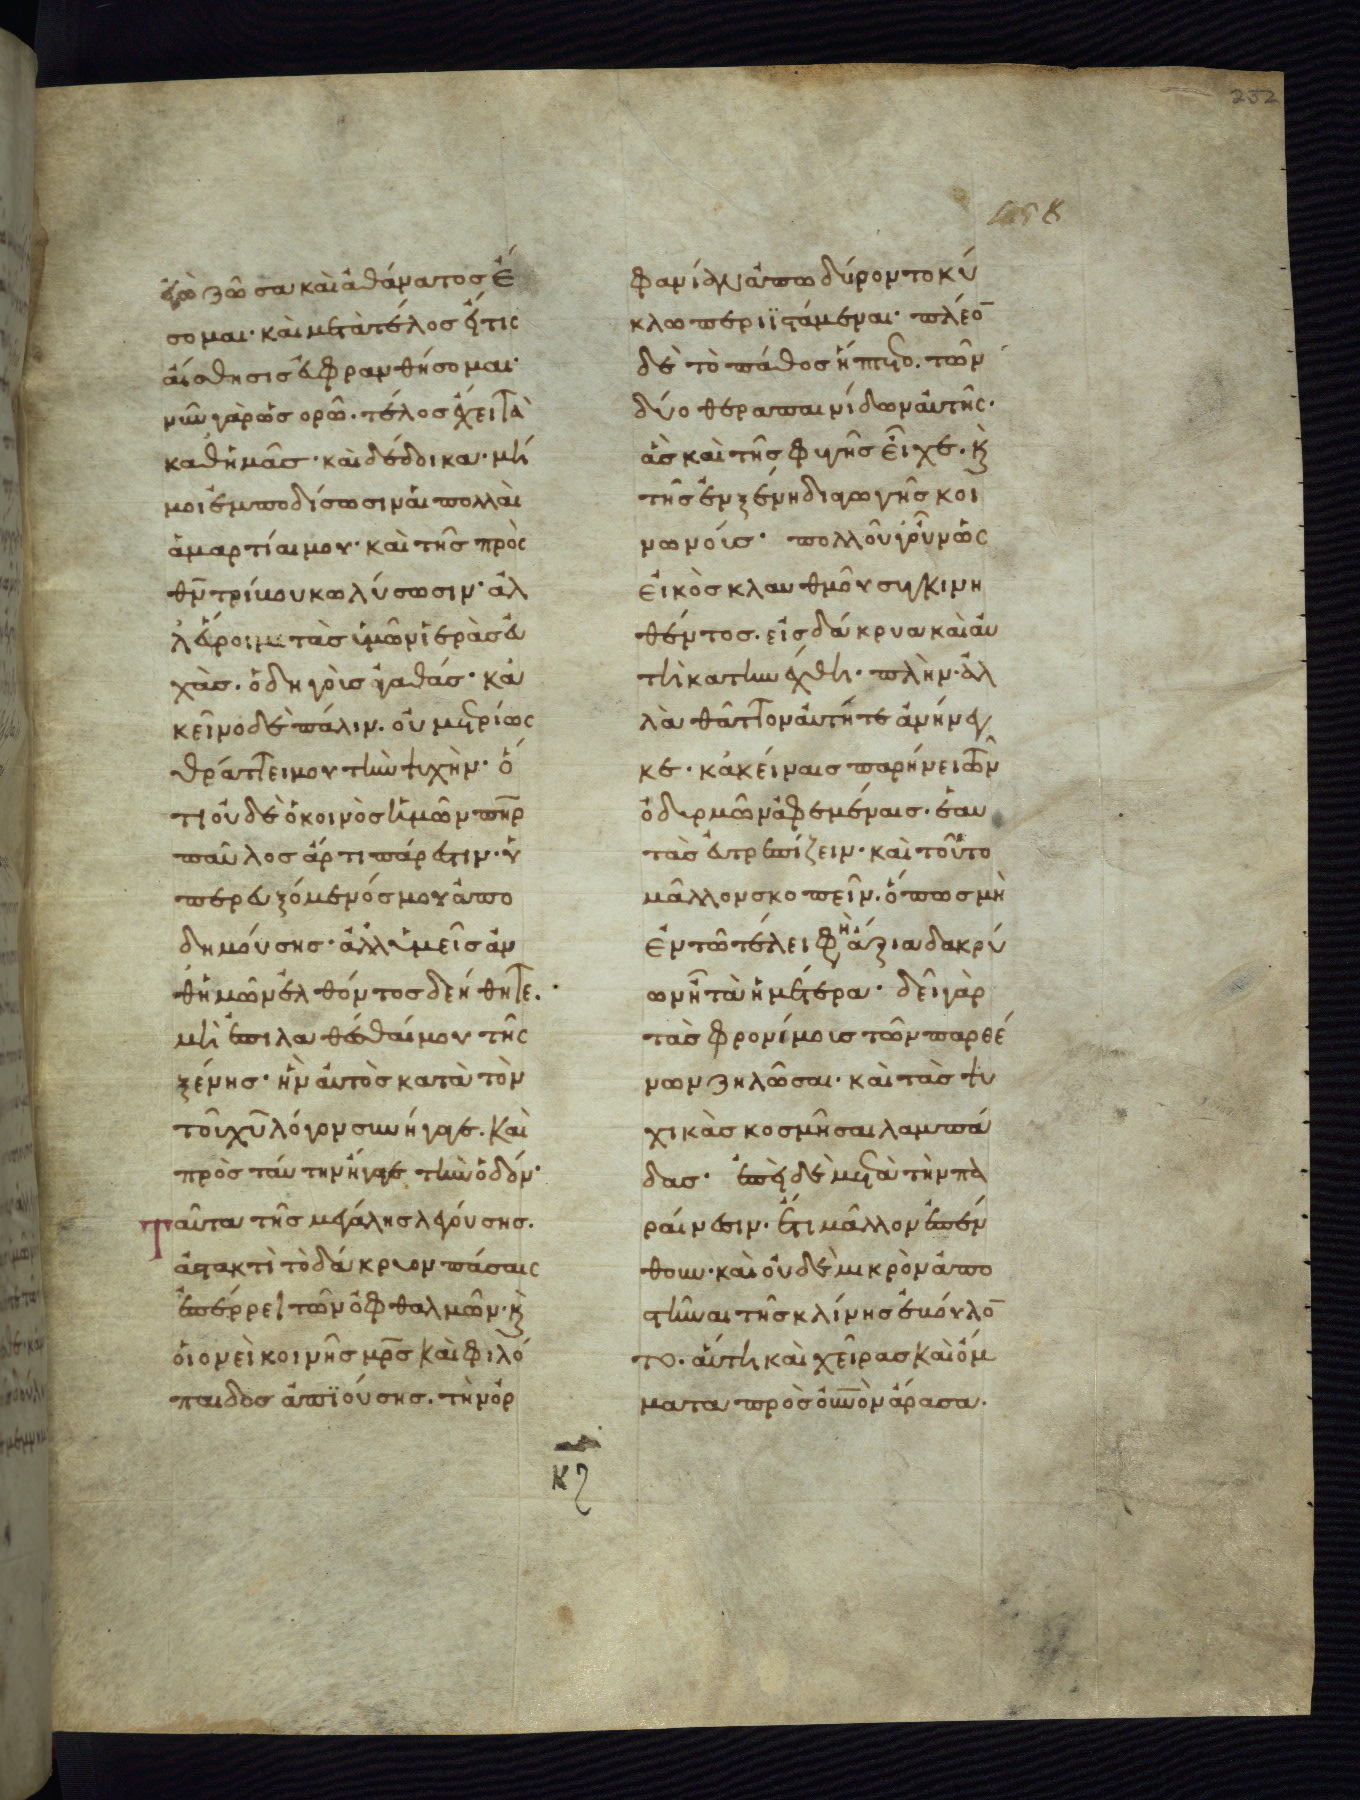 252
ἐγὼ ζῶσα καὶ ἀθάνατος ἔ
σομαι· καὶ μετὰ τέλος ἔτι τίς
αἴσθησις εὐφρανθήσομαι·
νῦν γὰρ ὡς ὁρῶ. τέλος ἔχει τὰ
καθ ἡμᾶς· καὶ δέδοικα· μή
μοι ἐμποδίσωσιν αἱ πολλαὶ
ἁμαρτίαι μου· καὶ τῆς πρὸς
θν τρίβου κωλύσωσιν· ἀλ
λ εὕροιμι τὰς ὑμῶν ἱερὰς εὐ
χὰς. ὁδηγοὺς ἀγαθάς· κἀ
κεῖνο δὲ πάλιν. οὐ μετρίως
θράττει μου τὴν ψυχήν· ὅ
τι οὐδὲ ὁ κοινὸς ἡμῶν πηρ
παῦλος ἄρτι πάρεστιν· ὑ
περευξόμενός μου ἀπο
δημούσης· ἀλλ ὑμεῖς ἀν
θ ἡμῶν ἐλθόντος δεήθητε.
μὴ ἐπιλαθέσθαί μου τῆς
ξένης· ἣν αὐτὸς κατὰ τὸν
τοῦ χυ λόγον συνήγαγε. καὶ
πρὸς ταύτην ἤγαγε τὴν ὁδόν·
Ταῦτα τῆς μεγάλης λεγούσης.
ἀστακτὶ τὸ δάκρυον πάσαις
ἐπέρρει τῶν ὀφθαλμῶν· καὶ
οἱονεὶ κοινῆς μρς καὶ φιλό
παιδος ἀπϊούσης. τὴν ὀρ
φανίαν ἀπωδύροντο κύ
κλω περιϊστάμεναι· πλέον
δὲ τὸ πάθος ἥπτετο. τῶν
δύο θεραπαινίδων αὐτῆς·
ἃς καὶ τῆς φυγῆς εἶχε. καὶ
τῆς ἐν ξένη διαγωγῆς κοι
νωνούς· πολλοῦ γοῦν ὡς
εἰκὸς κλαυθμοῦ συγκινη
θέντος. εἰς δάκρυα καὶ αὐ
τὴ κατηνέχθη· πλὴν ἀλ
λὰ θᾶττον αὐτή τε ἀνήνεγ
κε. κἀκείναις παρήνει τῶν
ὀδυρμῶν ἀφεμέναις. ἑαυ
τὰς εὐτρεπίζειν· καὶ τοῦτο
μᾶλλον σκοπεῖν. ὅπως μὴ
ἐν τῶ τέλει φανῆ ἄξια δακρύ
ων ῇ τὰ ἡμέτερα· δεῖ γὰρ
τὰς φρονίμους τῶν παρθέ
νων ζηλῶσαι· καὶ τὰς ψυ
χικὰς κοσμῆσαι λαμπά
δας· ἐπεὶ δὲ μετὰ τὴν πα
ραίνεσιν. ἔτι μᾶλλον ἐπέν
θουν· καὶ οὐδὲ μικρὸν ἀπο
στῆναι τῆς κλίνης ἐβούλον
το. αὐτὴ καὶ χεῖρας καὶ ὄμ
ματα πρὸς οὐνὸν ἄρασα.
κζ